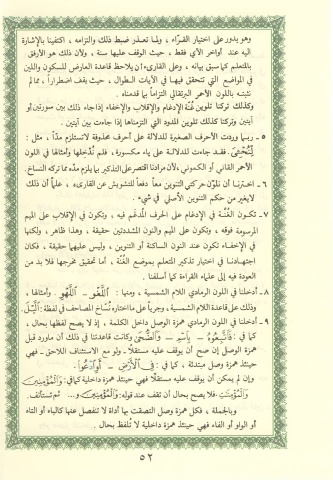 وهو يدور على اختيار القرّاء ، ولما تعذر ضبط ذلك والتزامه ، اكتفينا بالإشارة
اليه عند أواخر الآي فقط ، حيث الوقف عليها سنة ، ولأن ذلك هو الأرفق
بالمتعلم كما سبق بيانه ، وعلى القارىء أن يلاحظ قاعدة العارض للسكون واللين
في المواضع التي تتحقق فيها في الآيات الطوال ، حيث يقف اضطراراً ، مما لم
ننبه باللون الأحمر البرتقالي التزاماً بما قدمناه .
وكذلك تركنا تلوين غُنّة الإدغام والإقلاب والإخفاء إذا جاء ذلك بين سورتين أو
وتركنا كذلك تلوين المدود التي التزمناها إذا جاءت بين آيتين .
٥ - ربما وردت الأحرف الصغيرة للدلالة على أحرف محذوفة لا تستلزم مدّاً ، مثل :
فقد جاءت للدلالة على ياء مكسورة ، فلم نُدخلها وأمثالها في اللون
الأحمر القاني أو الكموني ، لأن مرادنا اقتصر على التذكير بما يلزم مدّه مما تركه النساخ .
٦ - اخترنا أن نلوّن حركتي التنوين معاً دفعاً للتشويش عن القارىء ، علماً أن ذلك
لا يغير من حكم التنوين الأصلي في شيء .
٧ - تكون الغُنّة في الإدغام على الحرف المُدغم فيه ، وتكون في الإقلاب على الميم
المرسومة فوقه ، وتكون على الميم والنون المشددتين حقيقة ، وهذا ظاهر ، ولكنها
في الإخفاء تكون عند النون الساكنة أو التنوين ، وليس عليهما حقيقة ، فكان
اجتهادنا في اختيار تذكير المتعلم بموضع الغُنّة ، أما تحقيق مخرجها فلا بد من
العودة فيه إلى علماء القراءة كما أسلفنا .
٨ - أدخلنا في اللون الرمادي اللام الشمسية ، ومنها : اللَّغْو - اللَّهْو . وأمثالها ،
وذلك على قاعدة اللام الشمسية ، وجرياً على ما اختاره نُسّاخ المصاحف في لفظة : الَّيْلَ .
٩ - أدخلنا في اللون الرمادي همزة الوصل داخل الكلمة ، إذ لا يصح لفظها بحال ،
كما في : فَاسْعَوْا - بِاسْمِ - وَالضُّحَى وكانت قاعدتنا في ذلك أن ماورد قبل
همزة الوصل إن صح أن يوقف عليه مستقلاً - ولو مع الاستئناف اللاحق - فهي
حينئذ همزة وصل مبتدئة ، كما في : فِي الْأَرْضِ - أَوِ ادْعُوا .
وإن لم يمكن أن يوقف عليه مستقلاً فهي حينئذ همزة داخلية كما في : وَالْمُؤْمِنِينَ
وَالْمُؤْمِنَاتِ - فلا يصح بحال أن تقف عند قوله : وَالْمُؤْمِنِينَ و... ثم تستأنف .
وبالجملة ، فكل همزة وصل التصقت بها أداة لا تنفصل عنها كالباء أو التاء
أو الواو أو الفاء فهي حينئذ همزة داخلية لا تُلفظ بحال .
٥٢